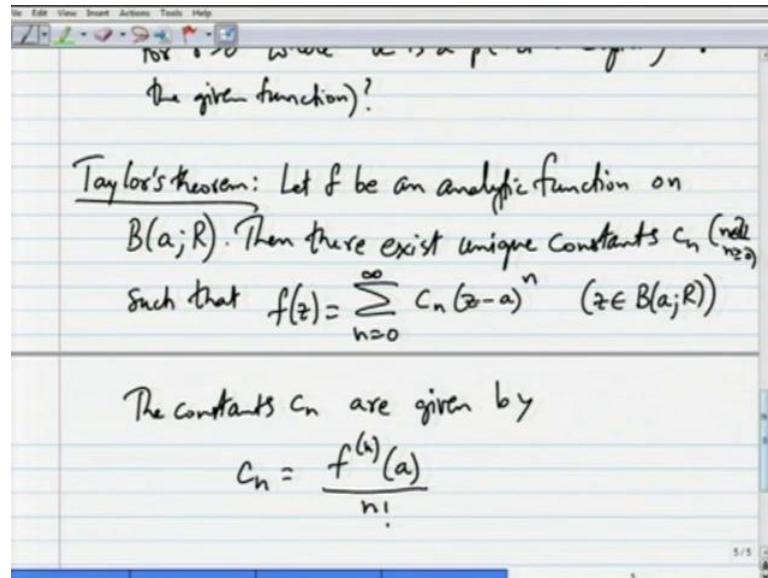 File Edit View Insert Actions Tools Help
for is a
the given function)?
Taylor's theorem: Let f be an analytic function on
B(a; R). Then there exist unique constants cₙ (n∈ℤ n≥0)
such that f(z) = ∑_{n=0}^{∞} cₙ (z-a)ⁿ (z ∈ B(a; R))
The constants cₙ are given by
cₙ = f⁽ⁿ⁾(a) / n!
5/5